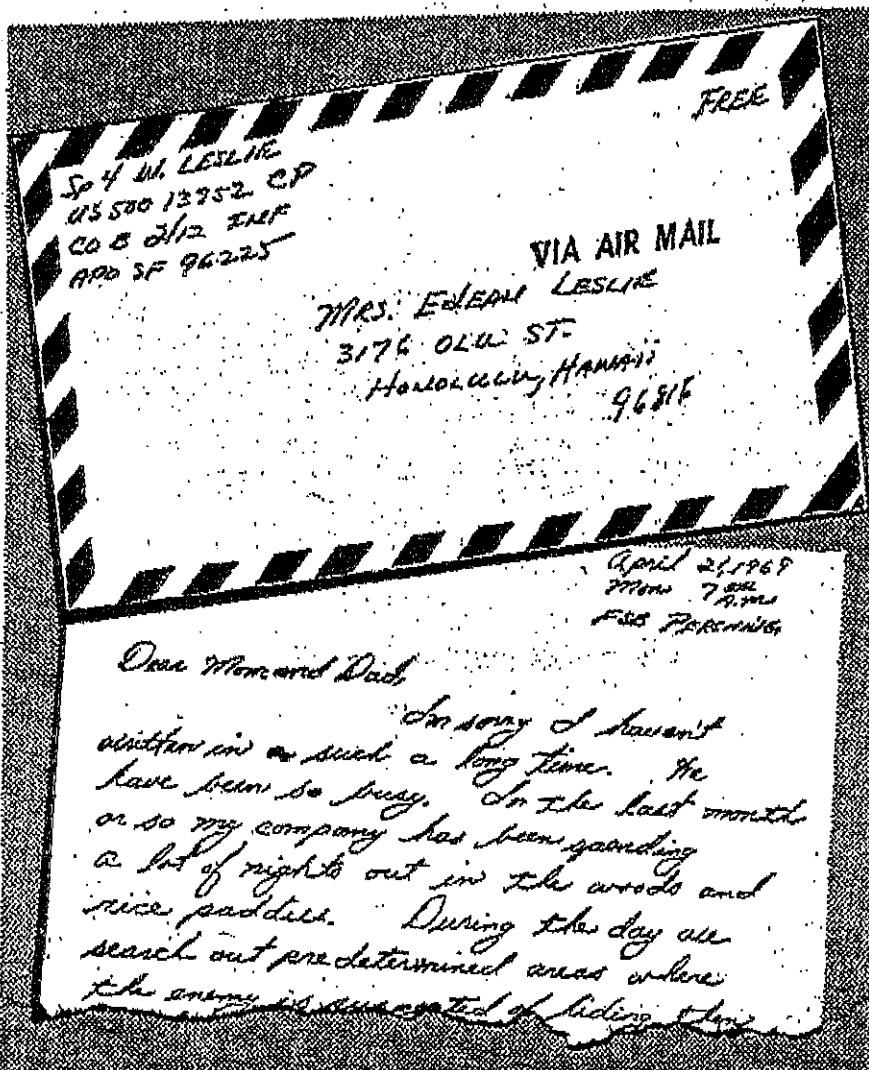 FREE
Sp 4 W. LESLIE
US 500 13952 CP
CO B 2/12 INF
APO SF 96225
VIA AIR MAIL
MRS. EDEAN LESLIE
3176 OLU ST.
HONOLULU, HAWAII
96816
April 21, 1969
Mon 7 A.M.
FSB PERSHING
Dear Mom and Dad,
I'm sorry I haven't
written in such a long time. We
have been so busy. In the last month
or so my company has been spending
a lot of nights out in the woods and
rice paddies. During the day we
search out predetermined areas where
the enemy is suspected of hiding